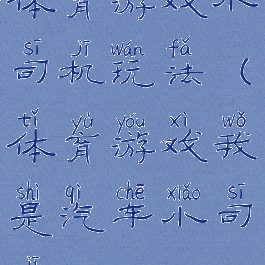 体育游戏小
sī jī wán fǎ
司机玩法(
tǐ yù yóu xì wǒ
体育游戏我
shì qì chē xiǎo sī
是汽车小司
jī